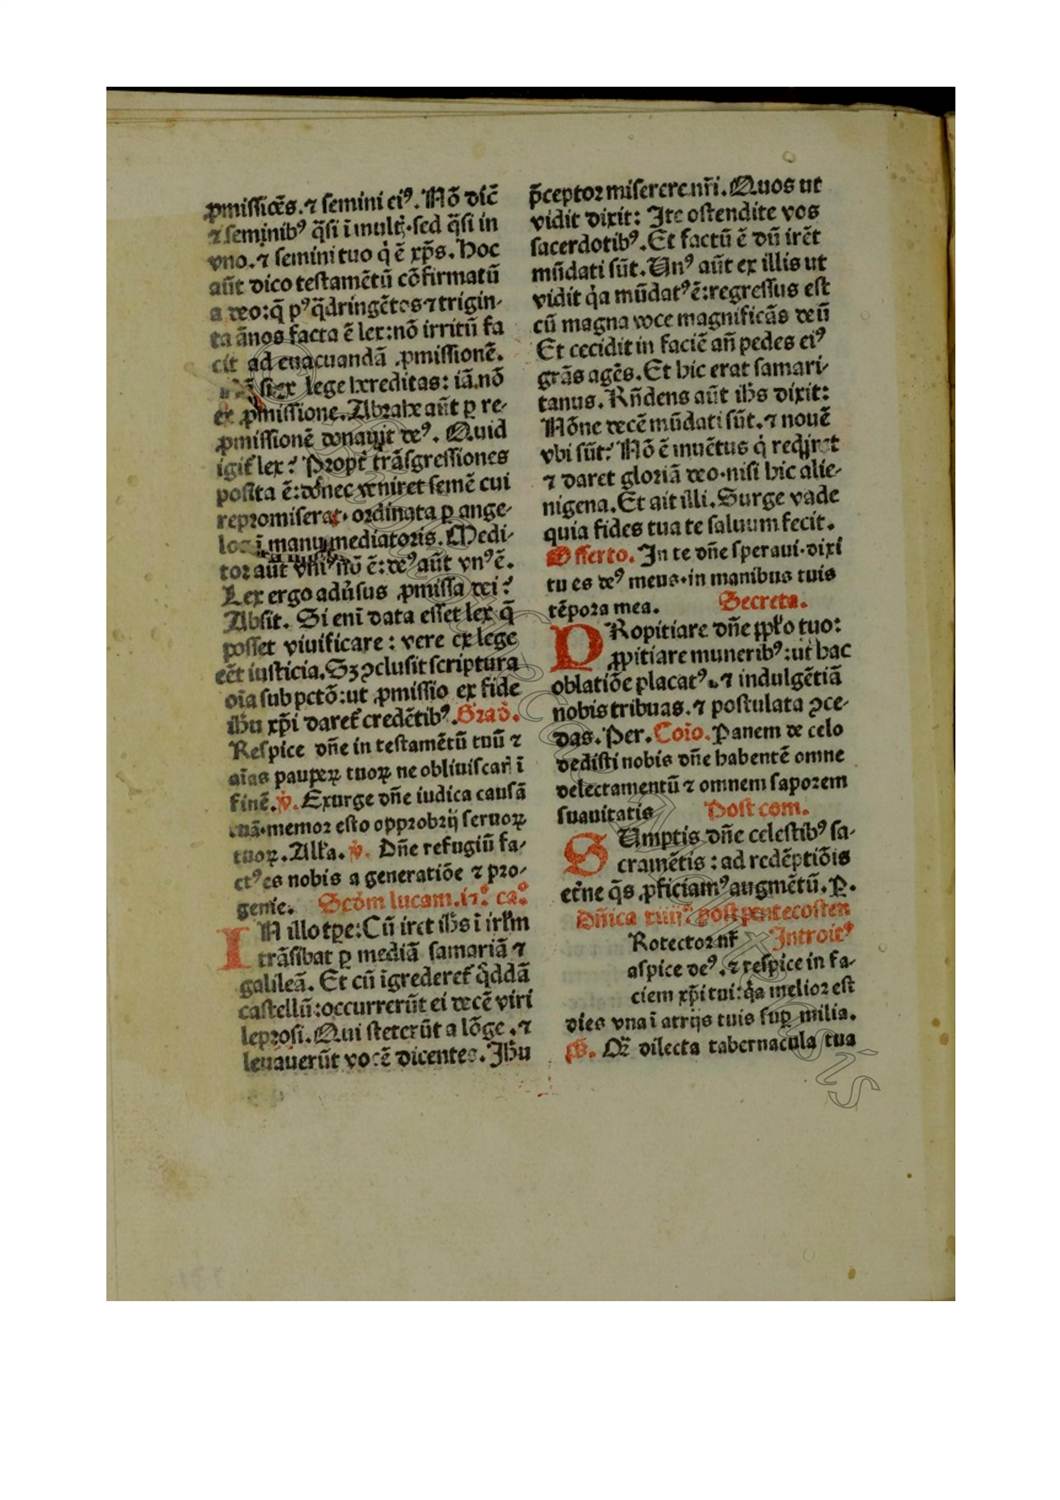 ꝓmissiões. ⁊ semini eiꝰ. Nō dicē
⁊ seminibꝰ q̄si ī multꝭ. sed q̄si in
vno. ⁊ semini tuo q̇ ē xp̄s. Hoc
aūt dico testamētū cōfirmatū
a deo: q̄ pꝰ q̄dringētos ⁊ trigin-
ta ānos facta ē lex: nō irritū fa
cit ad euacuandā ꝓmissionē.
si ex lege hereditas: iā nō
ex ꝓmissione. Abrahe aūt ꝑ re-
ꝓmissionē donauit deꝰ. Quid
igit̄ lex? Propt̄ trāsgressiones
posita ē: donec veniret semē cui
repromiserat. ordinata ꝑ ange-
los ī manu mediatoris. Medi-
tor aūt vniꝰ nō ē: deꝰ aūt vnꝰ ē.
Lex ergo adūsus ꝓmissa dei?
Absit. Si enī data esset lex q̄
posset viuificare: vere ex lege
eēt iusticia. Sꝫ ꝯclusit scriptura
oīa sub pctō: ut ꝓmissio ex fide
ihu xp̄i daret̄ credētibꝰ. Grad̄.
Respice dn̄e in testamētū tuū ⁊
aīas pauꝑeꝝ tuoꝝ ne obliuiscar̄ ī
finē. v̄. Exurge dn̄e iudica causā
tuā. memor esto opprobrij seruoꝝ
tuoꝝ. All̄a. v̄. Dn̄e refugiū fa-
ctꝰ es nobis a generatiōe ⁊ pro-
genie. Scd̄m lucam. 17º. caº
IN illo tꝑe: Cū iret ihs ī irl̄m
trāsibat ꝑ mediā samariā ⁊
galileā. Et cū īgrederet̄ q̄ddā
castellū: occurrerūt ei decē viri
leprosi. Qui steterūt a lōge. ⁊
leuauerūt vocē dicentes. Ihu
p̄ceptor miserere nr̄i. Quos ut
vidit dixit: Ite ostendite vos
sacerdotibꝰ. Et factū ē dū irēt
mūdati sūt. Unꝰ aūt ex illis ut
vidit q̇a mūdatꝰ ē: regressus est
cū magna voce magnificās deū
Et cecidit in faciē an̄ pedes eiꝰ
grās agēs. Et hic erat samari-
tanus. Rn̄dens aūt ihs dixit:
Nōne decē mūdati sūt. ⁊ nouē
vbi sūt? Nō ē inuētus q̇ rediret
⁊ daret gloriā deo. nisi hic alie-
nigena. Et ait illi. Surge vade
quia fides tua te saluum fecit.
Offerto. In te dn̄e speraui. dixi
tu es deꝰ meus. in manibus tuis
tēpora mea. Secreta.
PRopitiare dn̄e ppl̄o tuo:
ꝓpitiare muneribꝰ: ut hac
oblatiōe placatꝰ. ⁊ indulgētiā
nobis tribuas. ⁊ postulata ꝯce-
das. Per. Coīo. Panem de celo
dedisti nobis dn̄e habentē omne
delectamentū ⁊ omnem saporem
suauitatis Post com.
SUmptis dn̄e celestibꝰ sa-
cramētis: ad redēptiōis
et̄ne q̄s ꝓficiamꝰ augmētū. P.
Dn̄ica xiiij post pentecosten
Rotector nr̄ Introitꝰ
aspice deꝰ. ⁊ respice in fa-
ciem xp̄i tui: q̇a melior est
dies vna ī atrijs tuis suꝑ milia.
ps. Qz dilecta tabernacula tua